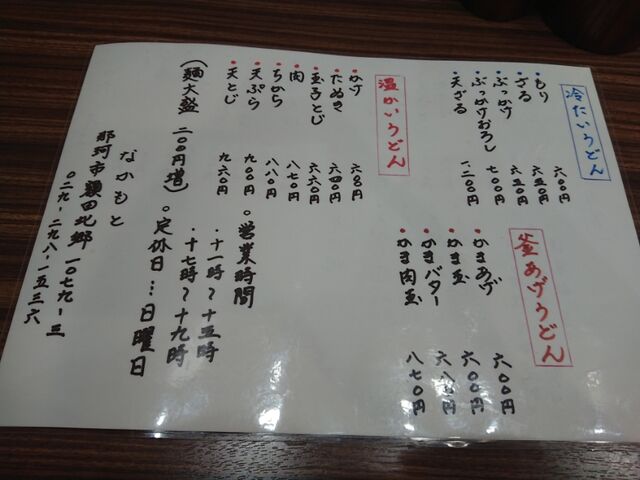 冷たいうどん
もり 六〇〇円
ざる 六五〇円
ぶっかけ 六五〇円
ぶっかけおろし 七〇〇円
天ざる 一、二〇〇円
釜あげうどん
かまあげ 六〇〇円
かま玉
かまバター 六八〇円
かま肉玉 八七〇円
温かいうどん
かけ
たぬき 六四〇円
玉子とじ 六六〇円
肉 八七〇円
ちから 八八〇円
天ぷら 九〇〇円
天とじ 九六〇円
(麺大盛 二〇〇円増)
○営業時間
・十一時~十五時
・十七時~十九時
○定休日…日曜日
なかもと
那珂市額田北郷一〇七九-三
〇二九-二九八-一五三六